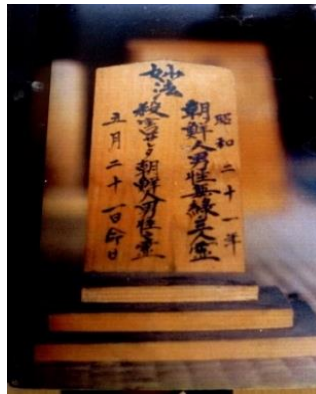 妙法
昭和二十一年
朝鮮人男性無縁三人霊
殺害 朝鮮人男性霊
五月二十一日命日